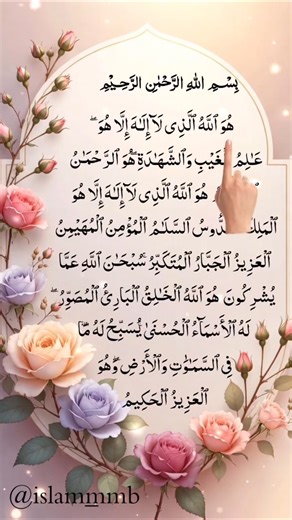 بِسْمِ اللهِ الرَّحْمٰنِ الرَّحِيْمِ
هُوَ ٱللَّهُ ٱلَّذِى لَآ إِلَـٰهَ إِلَّا هُوَ ۖ
عَـٰلِمُ ٱلْغَيْبِ وَٱلشَّهَـٰدَةِ ۖ هُوَ ٱلرَّحْمَـٰنُ
هُوَ ٱللَّهُ ٱلَّذِى لَآ إِلَـٰهَ إِلَّا هُوَ
ٱلْمَلِكُ ٱلْقُدُّوسُ ٱلسَّلَـٰمُ ٱلْمُؤْمِنُ ٱلْمُهَيْمِنُ
ٱلْعَزِيزُ ٱلْجَبَّارُ ٱلْمُتَكَبِّرُ ۚ سُبْحَـٰنَ ٱللَّهِ عَمَّا
يُشْرِكُونَ هُوَ ٱللَّهُ ٱلْخَـٰلِقُ ٱلْبَارِئُ ٱلْمُصَوِّرُ ۖ
لَهُ ٱلْأَسْمَآءُ ٱلْحُسْنَىٰ ۚ يُسَبِّحُ لَهُۥ مَا
فِى ٱلسَّمَـٰوَٰتِ وَٱلْأَرْضِ ۖ وَهُوَ
ٱلْعَزِيزُ ٱلْحَكِيمُ
@islammmb